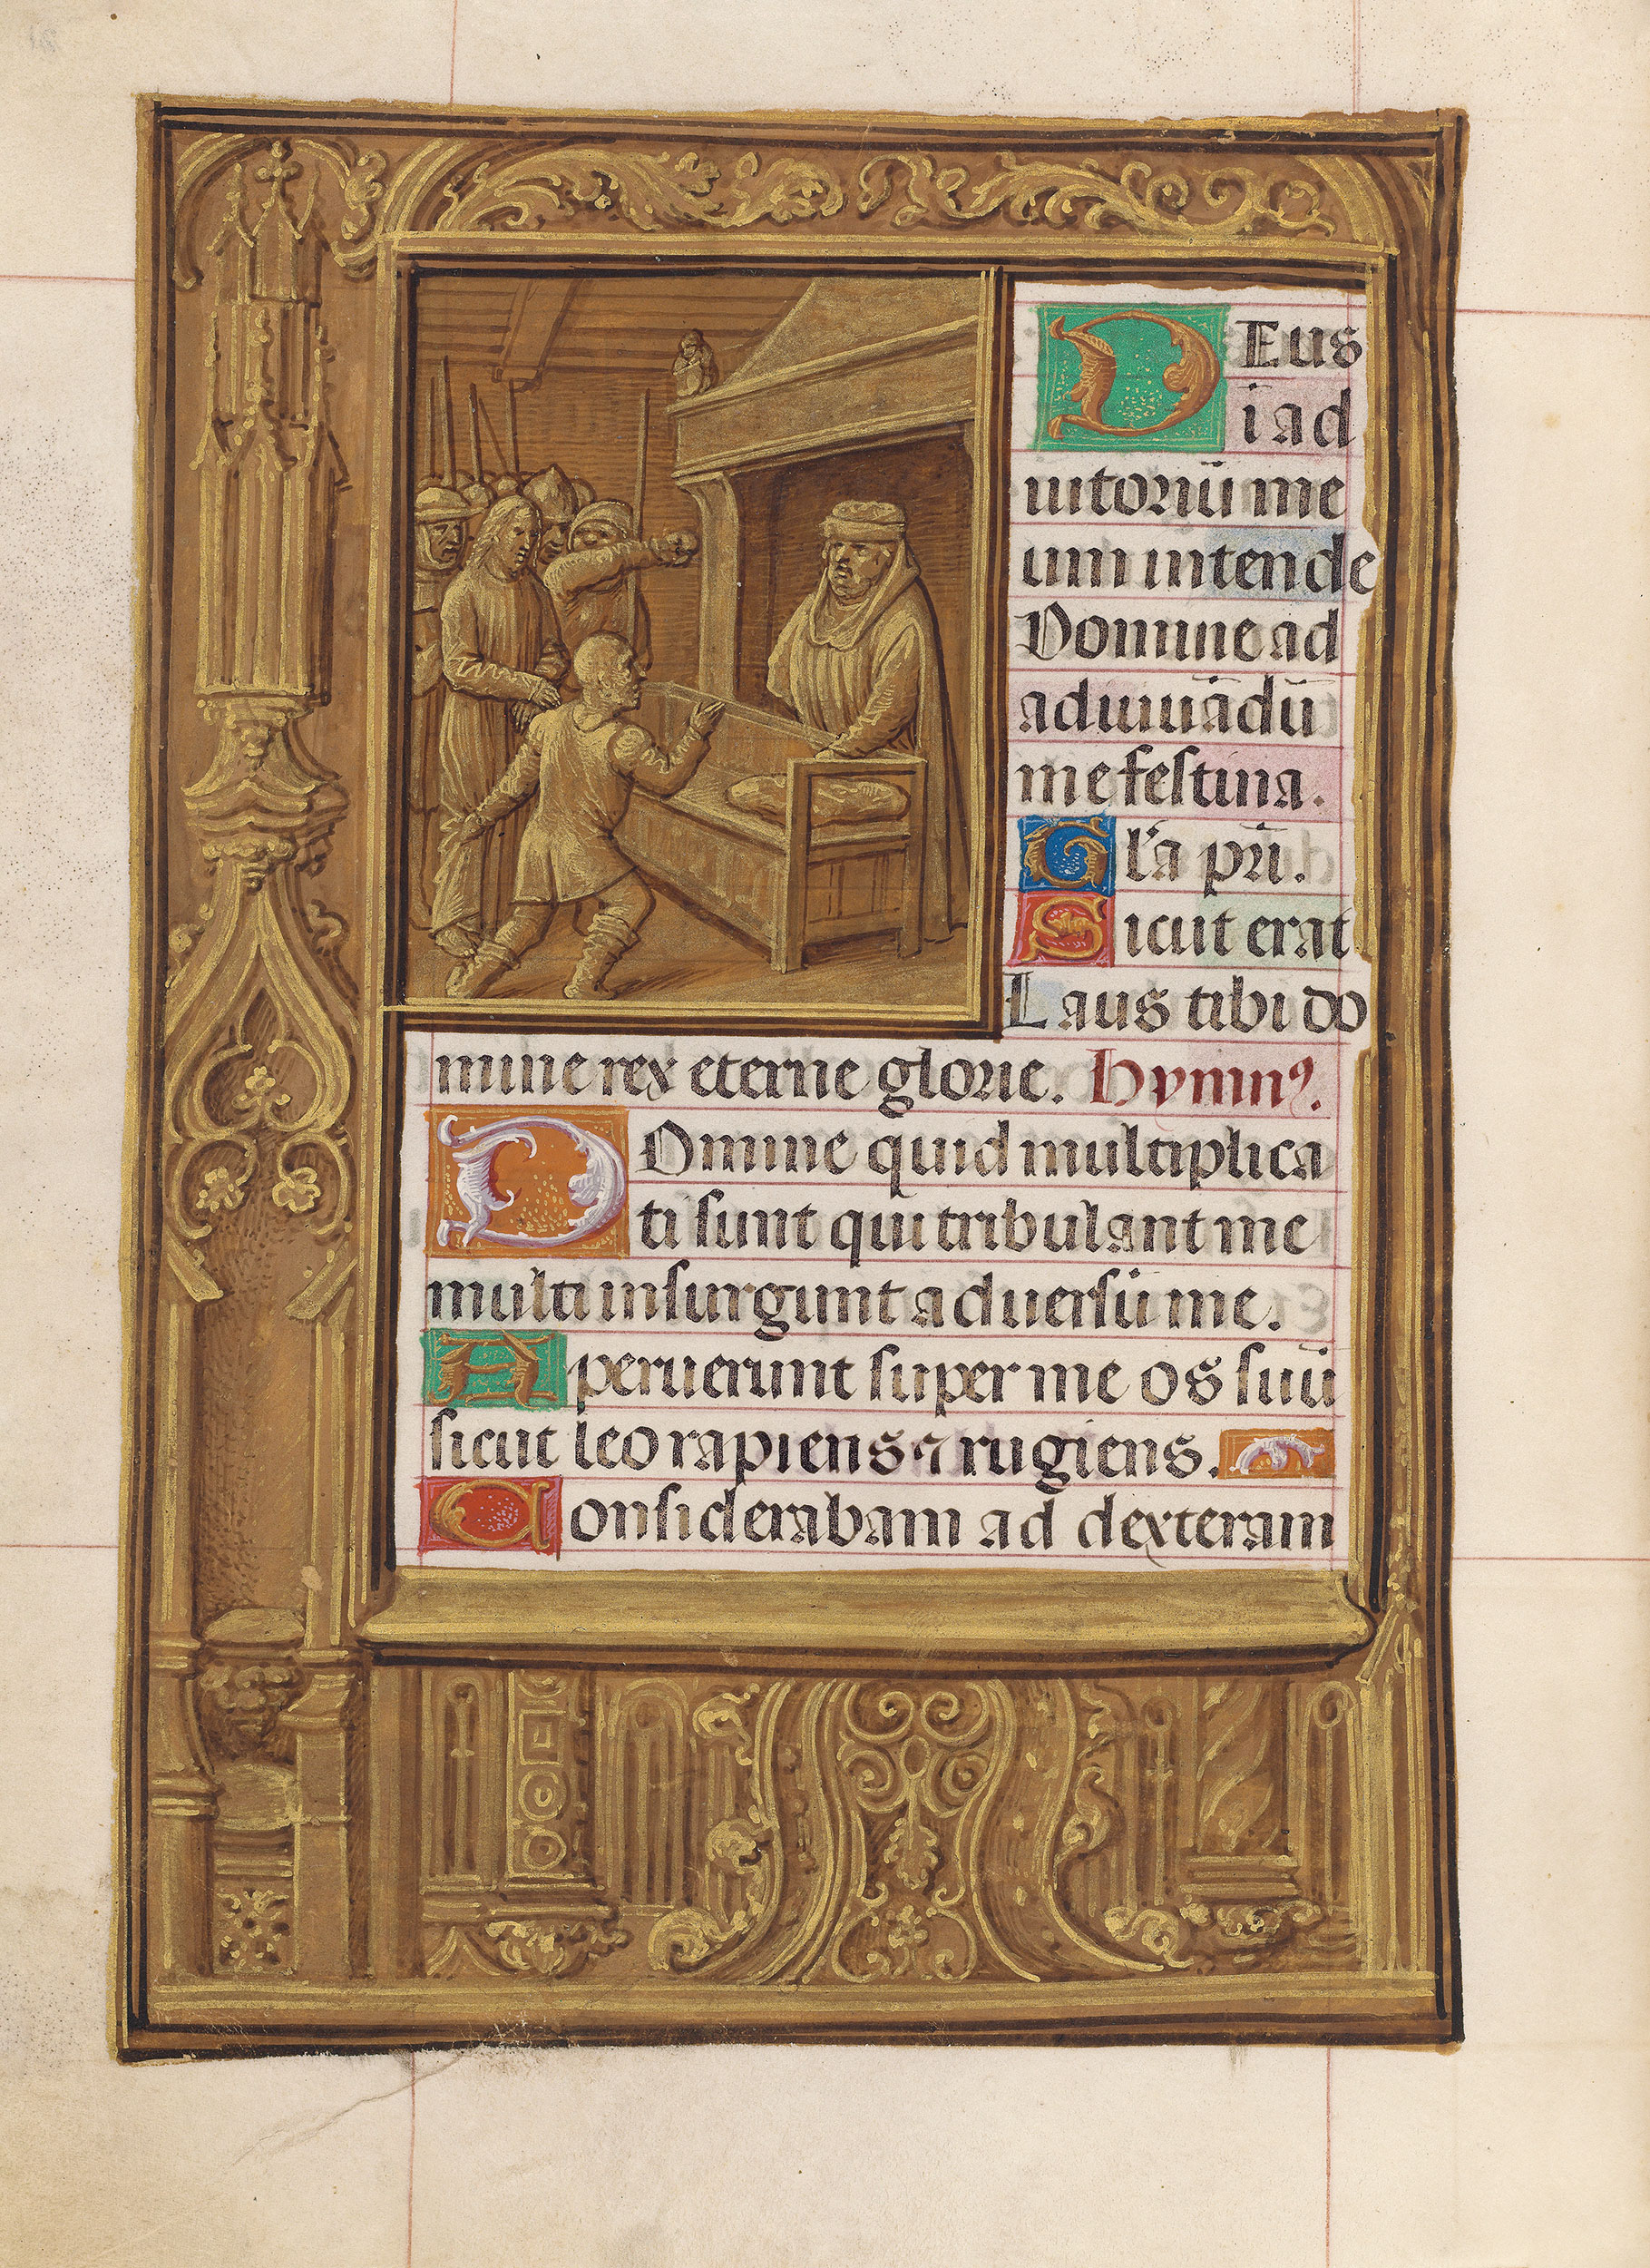 DEus
i ad
iutoriū me
um intende
Domine ad
adiuuādū
me festina.
Gl'a pri̅.
Sicut erat
Laus tibi do
mine rex eterne glorie. Hymnꝰ.
DOmine quid multiplica
ti sunt qui tribulant me
multi insurgunt aduersū me.
Aperuerunt super me os suū
sicut leo rapiens ⁊ rugiens.
Considerabam ad dexteram